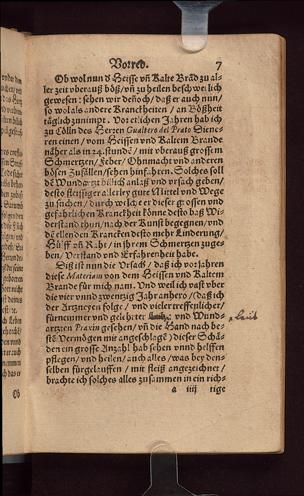 Vorred. 7
Ob wol nun d Heisse vñ Kalte Brãd zu al-
ler zeit vberauß böß/vñ zu heilen beschwerlich
gewesen: sehen wir deñoch/daß er auch nun/
so wol als andere Kranckheiten / an Boßheit
täglich zunimpt. Vor etlichen Jahren hab ich
zu Cölln des Herzen Gualters del Prato Diene-
ren einen/vom Heissen vnd Kaltem Brande
näher als in 24. stundẽ/ mit vberauß grossem
Schmertzen/Feber/Ohnmacht vnd anderen
bösen Zufällen/sehen hinfahren. Solches soll
dẽ Wundartzt billich anlaß vnd vrsach geben/
desto fleissiger allerley gute Mittel vnd Wege
zu suchen/durch welche er dieser grossen vnd
gefährlichen Kranckheit könne desto baß Wi-
derstand thun/nach der Kunst begegnen/vnd
dẽ ellenden Krancken desto mehr Linderung/
Hülff vñ Raht/ in jhrem Schmertzen zuge-
ben/ Verstand vnd Erfahrenheit habe.
Diß ist nun die Vrsach/ daß ich vor Jahren
diese Materiam von dem Heissen vnd Kaltem
Brande für mich nam. Vnd weil ich vast vber
die vier vnnd zwentzig Jahr anhero/ daß ich
der Artzeney folge / vnd vieler trefflicher/
fürnemmer vnd gelehrter vnd Wund-
artzten Praxin gesehen/ vñ die Hand nach be-
stẽ Vermögen mit angeschlagẽ) dieser Schä-
den ein grosse Anzahl hab sehen vnnd helffen
pflegen/vnd heilen/ auch alles/was bey den-
selben fürgelauffen / mit fleiß angezeichnet/
brachte ich solches alles zusammen in ein rich-
a iiij tige